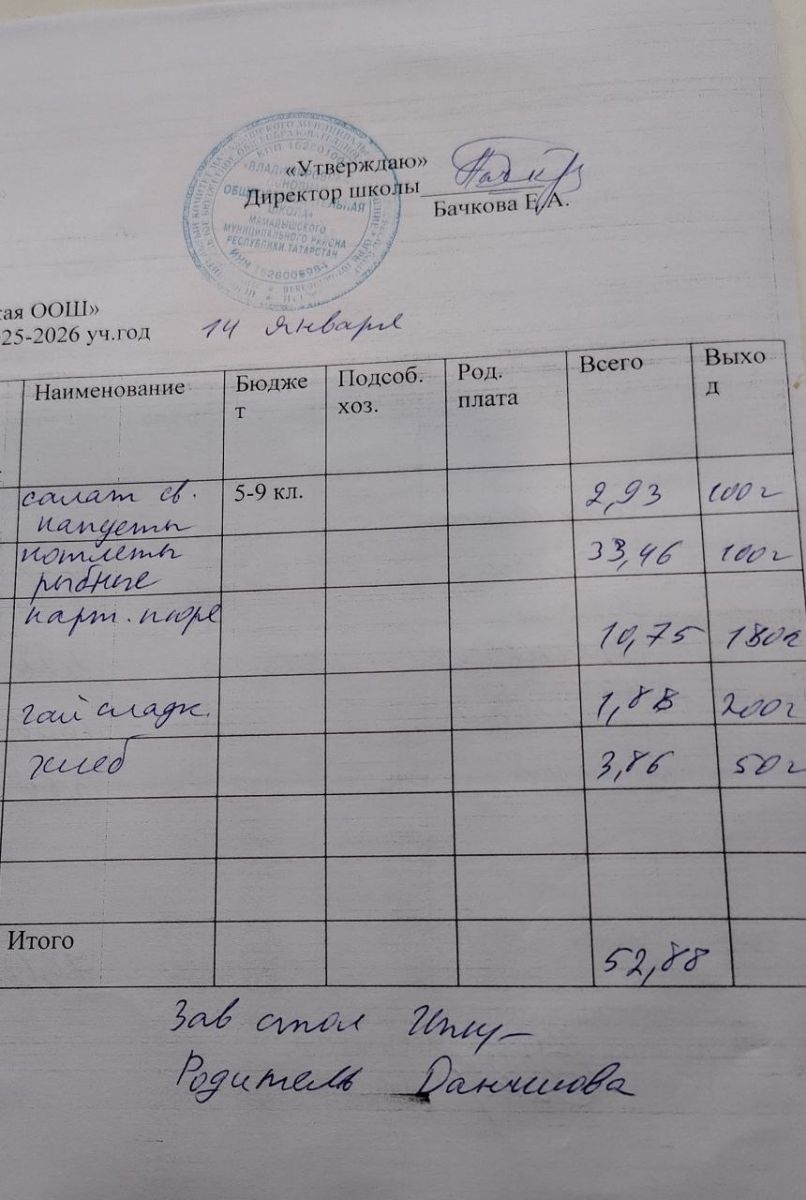 «Утверждаю»
Директор школы
Бачкова Е.А.
«ВЛАДИ
ОБЩ
ЬНАЯ
ШКОЛА»
МАМАДЫШСКОГО
МУНИЦИПАЛЬНОГО РАЙОНА
РЕСПУБЛИКИ ТАТАРСТАН
кая ООШ»
25-2026 уч.год 14 января
Наименование Бюдже
т Подсоб.
хоз. Род.
плата Всего Выхо
д
салат св.
капусты 5-9 кл. 2,93 100г
котлеты
рыбные 33,46 100г
карт. пюре 10,75 180г
чай сладк. 1,88 200г
хлеб 3,86 50г
Итого 52,88
Зав стол
Родитель